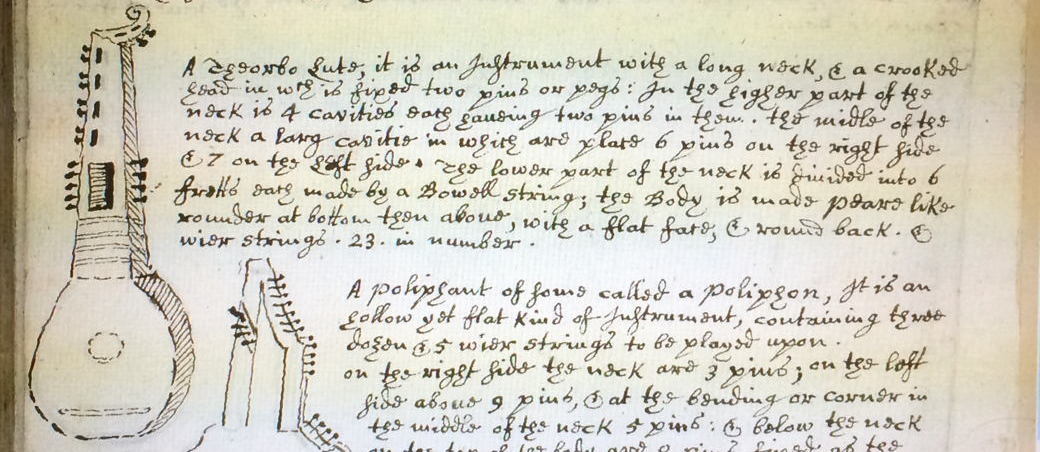 A Theorbo Lute, it is an Instrument with a long neck, & a crooked
head in wch is fixed two pins or pegs: In the higher part of the
neck is 4 cavities each haveing two pins in them. the midle of the
neck a larg cavitie in which are place 6 pins on the right side
& 7 on the left side. The lower part of the neck is divided into 6
fretts each made by a Bowell string; the Body is made peare like
rounder at bottom then above, with a flat face, & round back. &
wier strings . 23. in number .
A Poliphant of some called a Poliphon, It is an
hollow yet flat kind of Instrument, containing three
dozen & 5 wier strings to be played upon .
on the right side the neck are 3 pins; on the left
side above 9 pins, & at the bending or corner in
the middle of the neck 5 pins: & below the neck
on the top of the body are 8 pins fixed as the